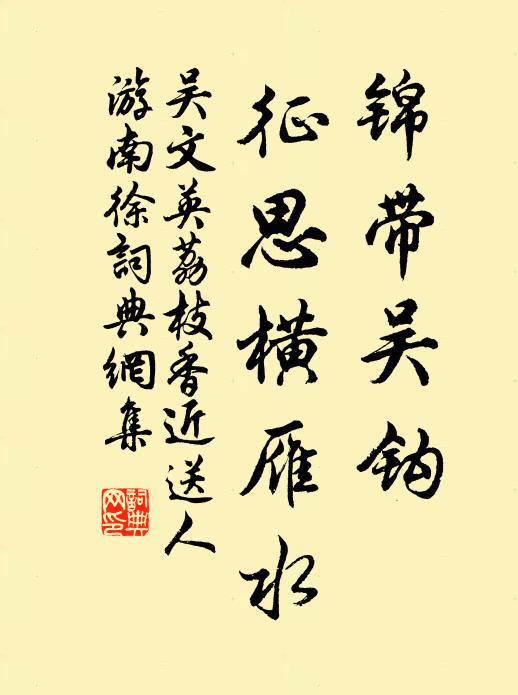 锦带吴钩
征思横雁水
吴文英荔枝香近送人
游南徐詞典網集
詞典网印